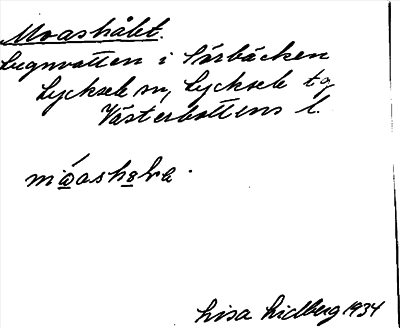 Moashålet.
Lugnvatten i Pärbäcken
Lycksele sn, Lycksele tg
Västerbottens l.
Lisa Lidberg 1934